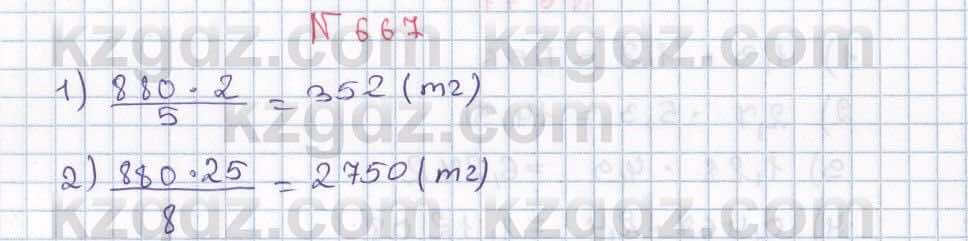 № 667
1) 880 · 2 / 5 = 352 (тг)
2) 880 · 25 / 8 = 2750 (тг)
kzgdz.com kzgdz.com
kzgdz.com
kzgdz.com kzgdz.com